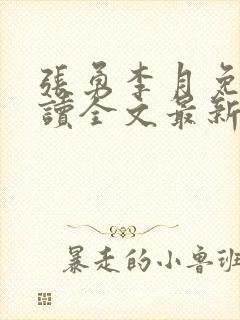 張勇李月免
讀全文最新
暴走的小鲁班